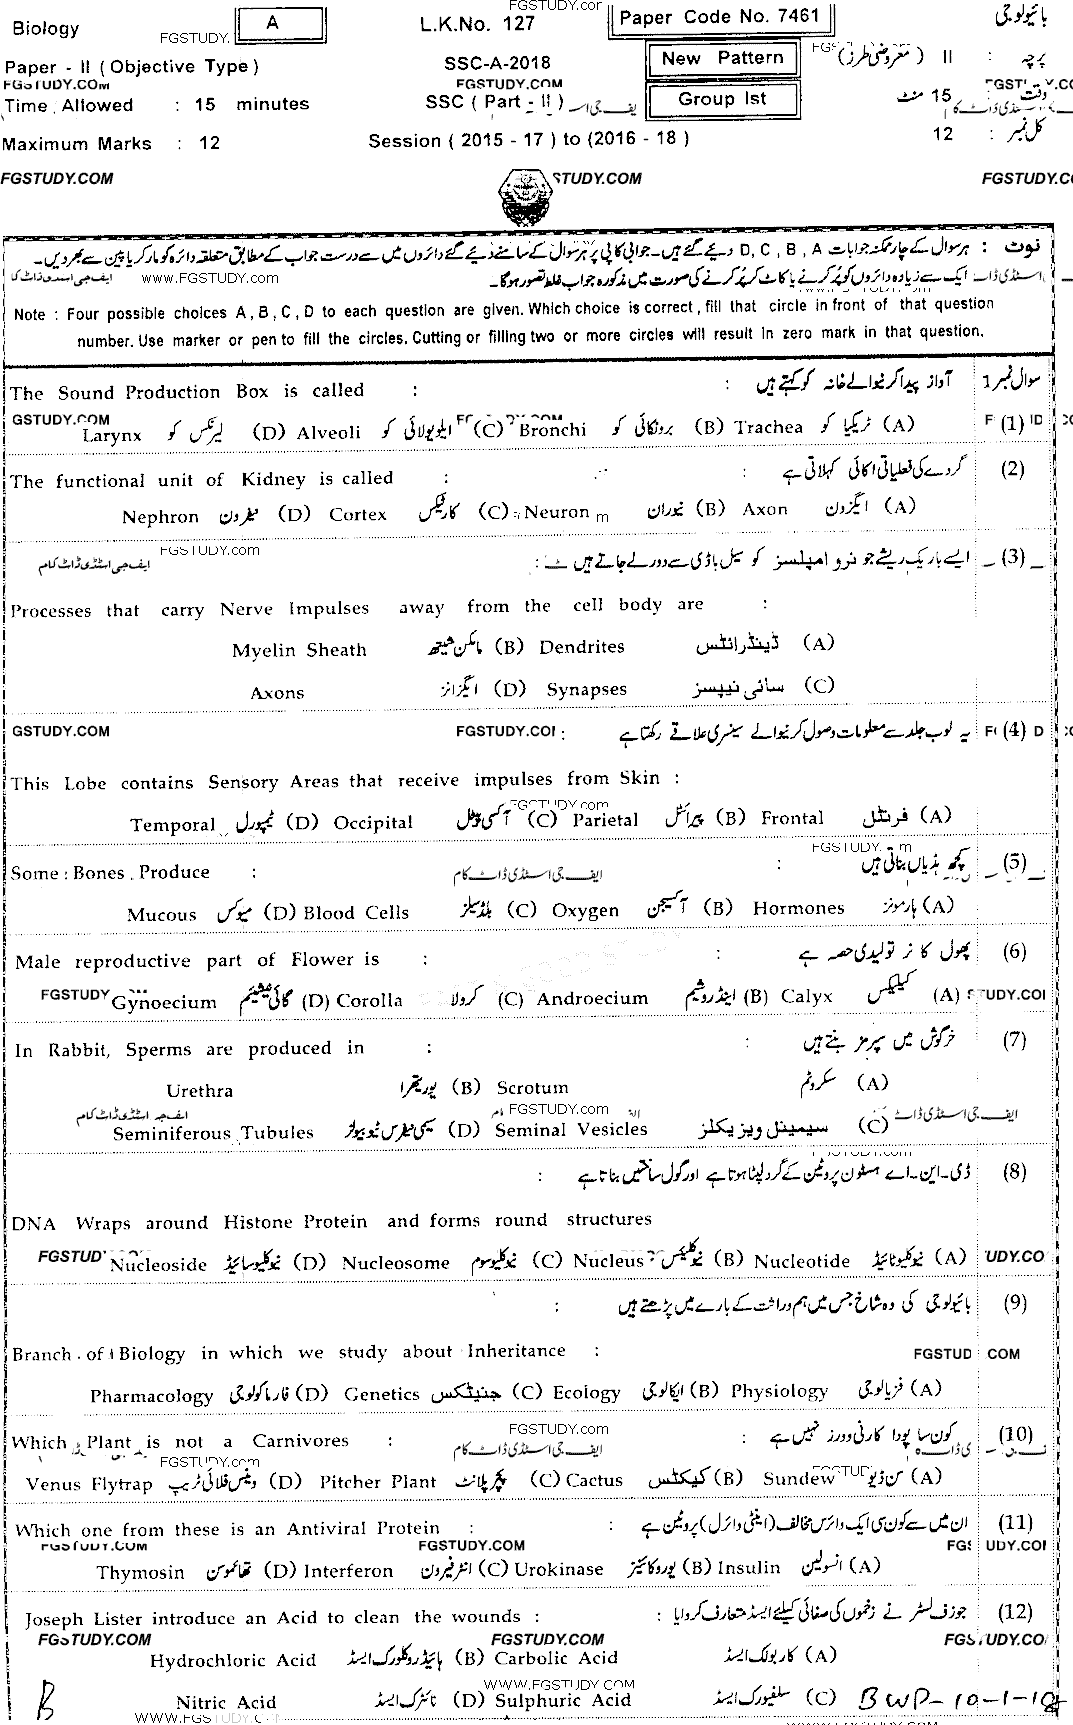 FGSTUDY.com
Biology FGSTUDY. A L.K.No. 127 Paper Code No. 7461 بائیولوجی
Paper - II (Objective Type) SSC-A-2018 New Pattern پرچہ : II (معروضی طرز)
FGSTUDY.COM FGSTUDY.COM
Time Allowed : 15 minutes SSC (Part - II) Group Ist وقت : 15 منٹ
Maximum Marks : 12 Session (2015 - 17) to (2016 - 18) کل نمبر : 12
FGSTUDY.COM STUDY.COM FGSTUDY.C
نوٹ : ہر سوال کے چار ممکنہ جوابات D, C, B, A دیئے گئے ہیں۔ جوابی کاپی پر ہر سوال کے سامنے دیئے گئے دائروں میں سے درست جواب کے مطابق متعلقہ دائرہ کو مارکر یا پین سے بھر دیں۔
ایک سے زیادہ دائروں کو پُر کرنے یا کاٹ کر پُر کرنے کی صورت میں مذکورہ جواب غلط تصور ہوگا۔
www.FGSTUDY.com ایف جی اسٹڈی ڈاٹ کام
Note : Four possible choices A, B, C, D to each question are given. Which choice is correct, fill that circle in front of that question
number. Use marker or pen to fill the circles. Cutting or filling two or more circles will result in zero mark in that question.
سوال نمبر 1 آواز پیدا کرنیوالے خانہ کو کہتے ہیں :
The Sound Production Box is called :
(1) (A) ٹریکیا کو Trachea (B) برونکائی کو Bronchi (C) ایلویولائی کو Alveoli (D) لیرنکس کو Larynx
(2) گردے کی فعلیاتی اکائی کہلاتی ہے :
The functional unit of Kidney is called :
(A) ایگزون Axon (B) نیوران Neuron (C) کارٹیکس Cortex (D) نیفرون Nephron
FGSTUDY.com
(3) ایسے باریک ریشے جو نرو امپلسز کو سیل باڈی سے دور لے جاتے ہیں : ایف جی اسٹڈی ڈاٹ کام
Processes that carry Nerve Impulses away from the cell body are :
(A) ڈینڈرائٹس Dendrites (B) مائلن شیتھ Myelin Sheath
(C) سائی نیپسز Synapses (D) ایگزانز Axons
(4) یہ لوب جلد سے معلومات وصول کرنیوالے سینسری علاقے رکھتا ہے :
GSTUDY.COM FGSTUDY.COM
This Lobe contains Sensory Areas that receive impulses from Skin :
FGSTUDY.com
(A) فرنٹل Frontal (B) پیرائٹل Parietal (C) آکسی پیٹل Occipital (D) ٹمپورل Temporal
(5) کچھ ہڈیاں بناتی ہیں :
Some Bones Produce : ایف جی اسٹڈی ڈاٹ کام
(A) ہارمونز Hormones (B) آکسیجن Oxygen (C) بلڈ سیلز Blood Cells (D) میوکس Mucous
(6) پھول کا نر تولیدی حصہ ہے :
Male reproductive part of Flower is :
(A) کیلیکس Calyx (B) اینڈروشیم Androecium (C) کرولا Corolla (D) گائی نیشیئم Gynoecium
(7) خرگوش میں سپرمز بنتے ہیں :
In Rabbit, Sperms are produced in :
(A) سکروٹم Scrotum (B) یوریتھرا Urethra
FGSTUDY.com
(C) سیمینل ویزیکلز Seminal Vesicles (D) سیمی نیفرس ٹیوبیولز Seminiferous Tubules
(8) ڈی۔این۔اے ہسٹون پروٹین کے گرد لپٹا ہوتا ہے اور گول ساختیں بناتا ہے :
DNA Wraps around Histone Protein and forms round structures
(A) نیوکلیوٹائیڈ Nucleotide (B) نیوکلیئس Nucleus (C) نیوکلیوسوم Nucleosome (D) نیوکلیوسائیڈ Nucleoside
(9) بائیولوجی کی وہ شاخ جس میں ہم وراثت کے بارے میں پڑھتے ہیں :
Branch of Biology in which we study about Inheritance :
(A) فزیالوجی Physiology (B) ایکالوجی Ecology (C) جنیٹکس Genetics (D) فارماکولوجی Pharmacology
FGSTUDY.com
(10) کون سا پودا کارنی وورز نہیں ہے :
Which Plant is not a Carnivores : ایف جی اسٹڈی ڈاٹ کام
FGSTUDY.com
(A) سن ڈیو Sundew (B) کیکٹس Cactus (C) پچر پلانٹ Pitcher Plant (D) وینس فلائی ٹریپ Venus Flytrap
(11) ان میں سے کون سی ایک وائرس مخالف (اینٹی وائرل) پروٹین ہے :
Which one from these is an Antiviral Protein :
FGSTUDY.COM FGSTUDY.COM
(A) انسولین Insulin (B) یوروکائنیز Urokinase (C) انٹرفیرون Interferon (D) تھائموسن Thymosin
(12) جوزف لسٹر نے زخموں کی صفائی کیلئے ایسڈ متعارف کروایا :
Joseph Lister introduce an Acid to clean the wounds :
FGSTUDY.COM FGSTUDY.COM FGSTUDY.CO
(A) کاربولک ایسڈ Carbolic Acid (B) ہائیڈروکلورک ایسڈ Hydrochloric Acid
WWW.FGSTUDY.COM
(C) سلفیورک ایسڈ Sulphuric Acid (D) نائٹرک ایسڈ Nitric Acid
B
WWW.FGSTUDY.C